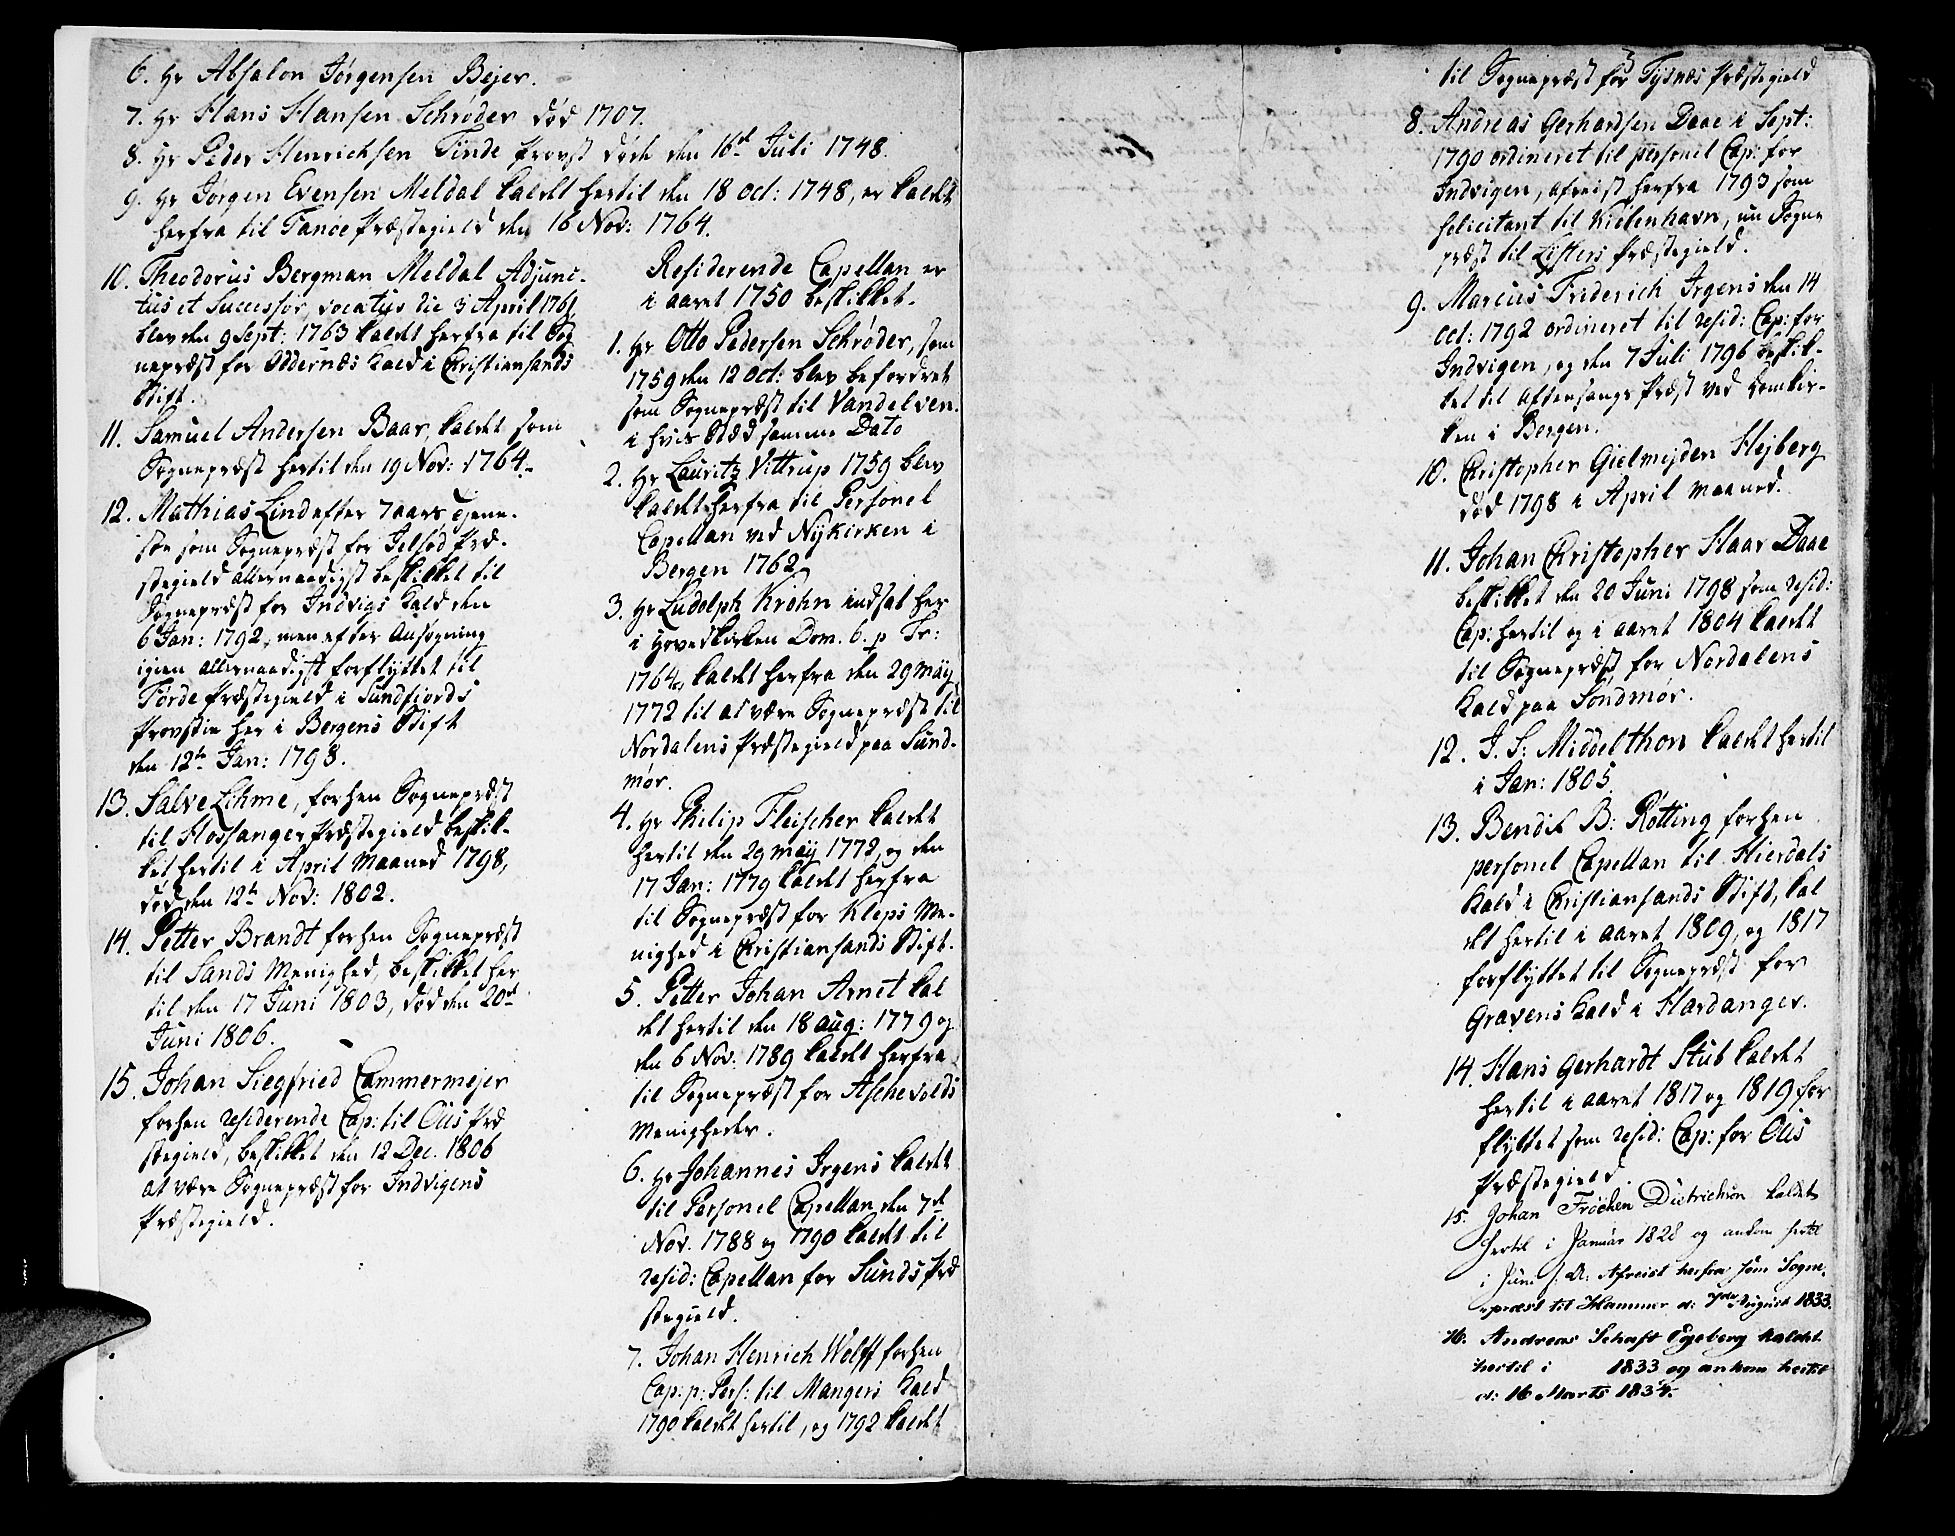 6. Hr Absalon Jørgensen Bejer.
7. Hr Hans Hansen Schrøder død 1707.
8. Hr Peder Henrichsen Finde Provst døde den 16d Juli 1748.
9. Hr Jørgen Evensen Meldal kaldet hertil den 18 Oct: 1748, er kaldet
herfra til Fanöe Præstegield den 16 Nov: 1764.
10. Theodorus Bergman Meldal Adjunc-
tus et Successor, vocatus die 3 April 1761,
blev den 9 Sept: 1763 kaldet herfra til Sog
nepræst for Oddernæs Kald i Christiansands
Stift.
11. Samuel Andersen Baar, kaldet som
Sognepræst hertil den 19 Nov: 1764.
12. Mathias Lind efter 7 aars Tjene-
ste som Sognepræst for Jelsöd Præ-
stegield allernaadigst beskikket til
Sognepræst for Indvigs Kald den
6 Jan: 1792, men efter Ansøgning
igien allernaadigst forflyttet til
Förde Præstegield i Sundfiords
Provstie her i Bergens Stift
den 12te Jan: 1798.
13. Salve Lihme, forhen Sognepræst
til Hossanger Præstegield beskik-
ket hertil i April Maaned 1798,
død den 12te Nov: 1802.
14. Petter Brandt forhen Sognepræst
til Sands Menighed, beskikket her
til den 17 Juni 1803, død den 20d
Juni 1806.
15. Johan Siegfried Cammermejer
forhen residerende Cap: til Ous Præ
stegield, beskikket den 12 Dec. 1806
at være Sognepræst for Indvigens
Præstegield.
Residerende Capellan er
i aaret 1750 beskikket.
1. Hr Otto Pedersen Schrøder, som
1759 den 12 Oct: blev befordret
som Sognepræst til Vandelven.
i hvis Stæd samme Dato
2. Hr Lauritz Vittrup 1759 blev
kaldet herfra til Personel
Capellan ved Nykirken i
Bergen 1762
3. Hr Ludolph Krohn indsat her
i Hovedkirken Dom. 6. p Tr:
1764, kaldet herfra den 29 Maÿ
1772 til at være Sognepræst til
Nordalens Præstegield paa Sund-
mør.
4. Hr Philip Fleischer kaldet
hertil den 29 Maÿ 1772, og den
17 Jan: 1779 kaldet herfra
til Sognepræst for Kleps Me-
nighed i Christiansands Stift.
5. Petter Johan Arnet kal
det hertil den 18 Aug: 1779 og
den 6 Nov: 1789 kaldet herfra
til Sognepræst for Aschevolds
Menigheder.
6. Hr Johannes Irgens kaldet
til Personel Capellan den 7de
Nov. 1788 og 1790 kaldet til
resid: Capellan for Sunds Præ
stegield.
7. Johan Henrich Wolff forhen
Cap: p: Pers: til Mangers Kald
1790 kaldet hertil, og 1792 kaldet
til Sognepræst for Tysnæs Præstegield
8. Andreas Gerhardsen Daae i Sept:
1790 ordineret til personel Cap: for
Indvigen, afreist herfra 1793 som
solicitant til Kiöbenhavn, nu Sogne
præst til Listers Præstegield.
9. Marcus Friderich Irgens den 14
Oct: 1792 ordineret til resid: Cap: for
Indvigen, og den 7 Juli 1796 beskik-
ket til Aftensangs Præst ved Domkir-
ken i Bergen.
10. Christopher Gielmejden Hejberg
død 1798 i April Maaned.
11. Johan Christopher Haar Daae
beskikket den 20 Juni 1798 som resid:
Cap: hertil og i aaret 1804 kaldet
til Sognepræst for Nordalens
Kald paa Söndmör.
12. J. S: Middelthon kaldet hertil
i Jan: 1805.
13. Bendix B: Rötting forhen
personel Capellan til Hierdals
Kald i Christiansands Stift, kal
det hertil i aaret 1809, og 1817
forflyttet til Sognepræst for
Gravens Kald i Hardanger.
14. Hans Gerhardt Stub kaldet
hertil i aaret 1817 og 1819 for
flyttet som resid: Cap: for Ous
Præstegield.
15. Johan Fröchen Dietrichson kaldet
hertil i Januar 1828 og ankom hertil
i Juni s. A. Afreist herfra som Sogne-
præst til Hammer d: 7de August 1833.
16. Andreas Schaft Egeberg kaldet
hertil i 1833 og ankom hertil
d: 16 Marts 1834.